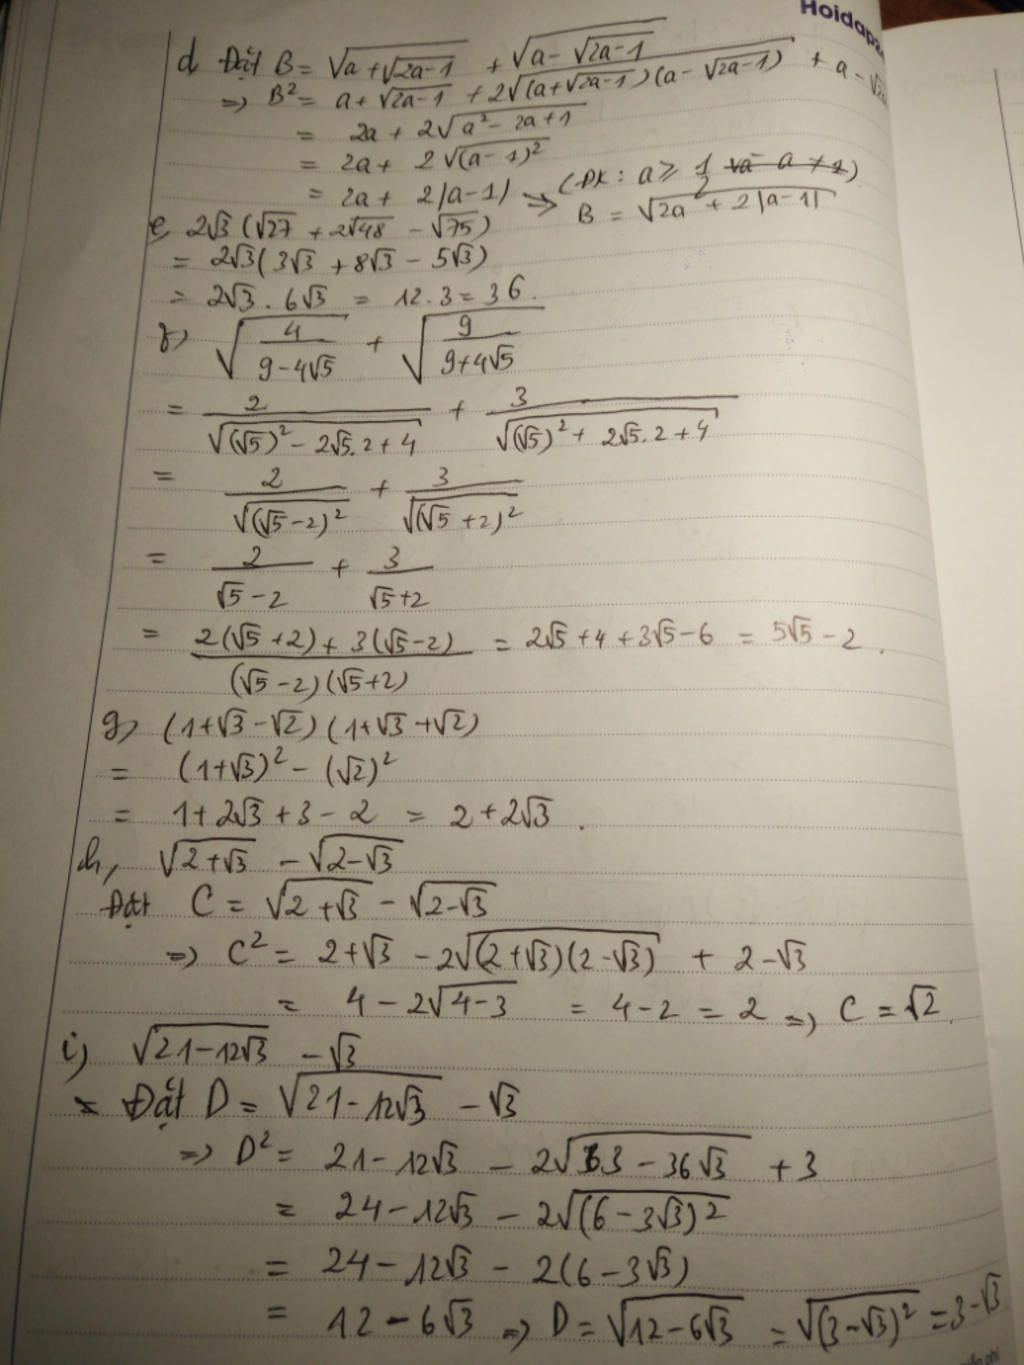 Hoidap2
d, Đặt B = √(a+√(2a-1)) + √(a-√(2a-1))
=> B² = a+√(2a-1) + 2√((a+√(2a-1))(a-√(2a-1))) + a - √2a
= 2a + 2√(a²-2a+1)
= 2a + 2√((a-1)²)
= 2a + 2|a-1| (ĐK: a ≥ 1/2 và a ≠ 1)
=> B = √(2a + 2|a-1|)
e, 2√3 (√27 + 2√48 - √75)
= 2√3 (3√3 + 8√3 - 5√3)
= 2√3 . 6√3 = 12.3 = 36.
f) √(4/(9-4√5)) + √(9/(9+4√5))
= 2/√((√5)² - 2√5.2 + 4) + 3/√((√5)² + 2√5.2 + 4)
= 2/√((√5-2)²) + 3/√((√5+2)²)
= 2/(√5-2) + 3/(√5+2)
= (2(√5+2) + 3(√5-2))/((√5-2)(√5+2)) = 2√5+4+3√5-6 = 5√5-2.
g) (1+√3-√2)(1+√3+√2)
= (1+√3)² - (√2)²
= 1+2√3+3-2 = 2+2√3.
h, √(2+√3) - √(2-√3)
Đặt C = √(2+√3) - √(2-√3)
=> C² = 2+√3 - 2√((2+√3)(2-√3)) + 2-√3
= 4 - 2√(4-3) = 4-2 = 2 => C = √2.
i) √(21-12√3) - √3
Đặt D = √(21-12√3) - √3
=> D² = 21-12√3 - 2√(63-36√3) + 3
= 24-12√3 - 2√((6-3√3)²)
= 24-12√3 - 2(6-3√3)
= 12-6√3 => D = √(12-6√3) = √((3-√3)²) = 3-√3